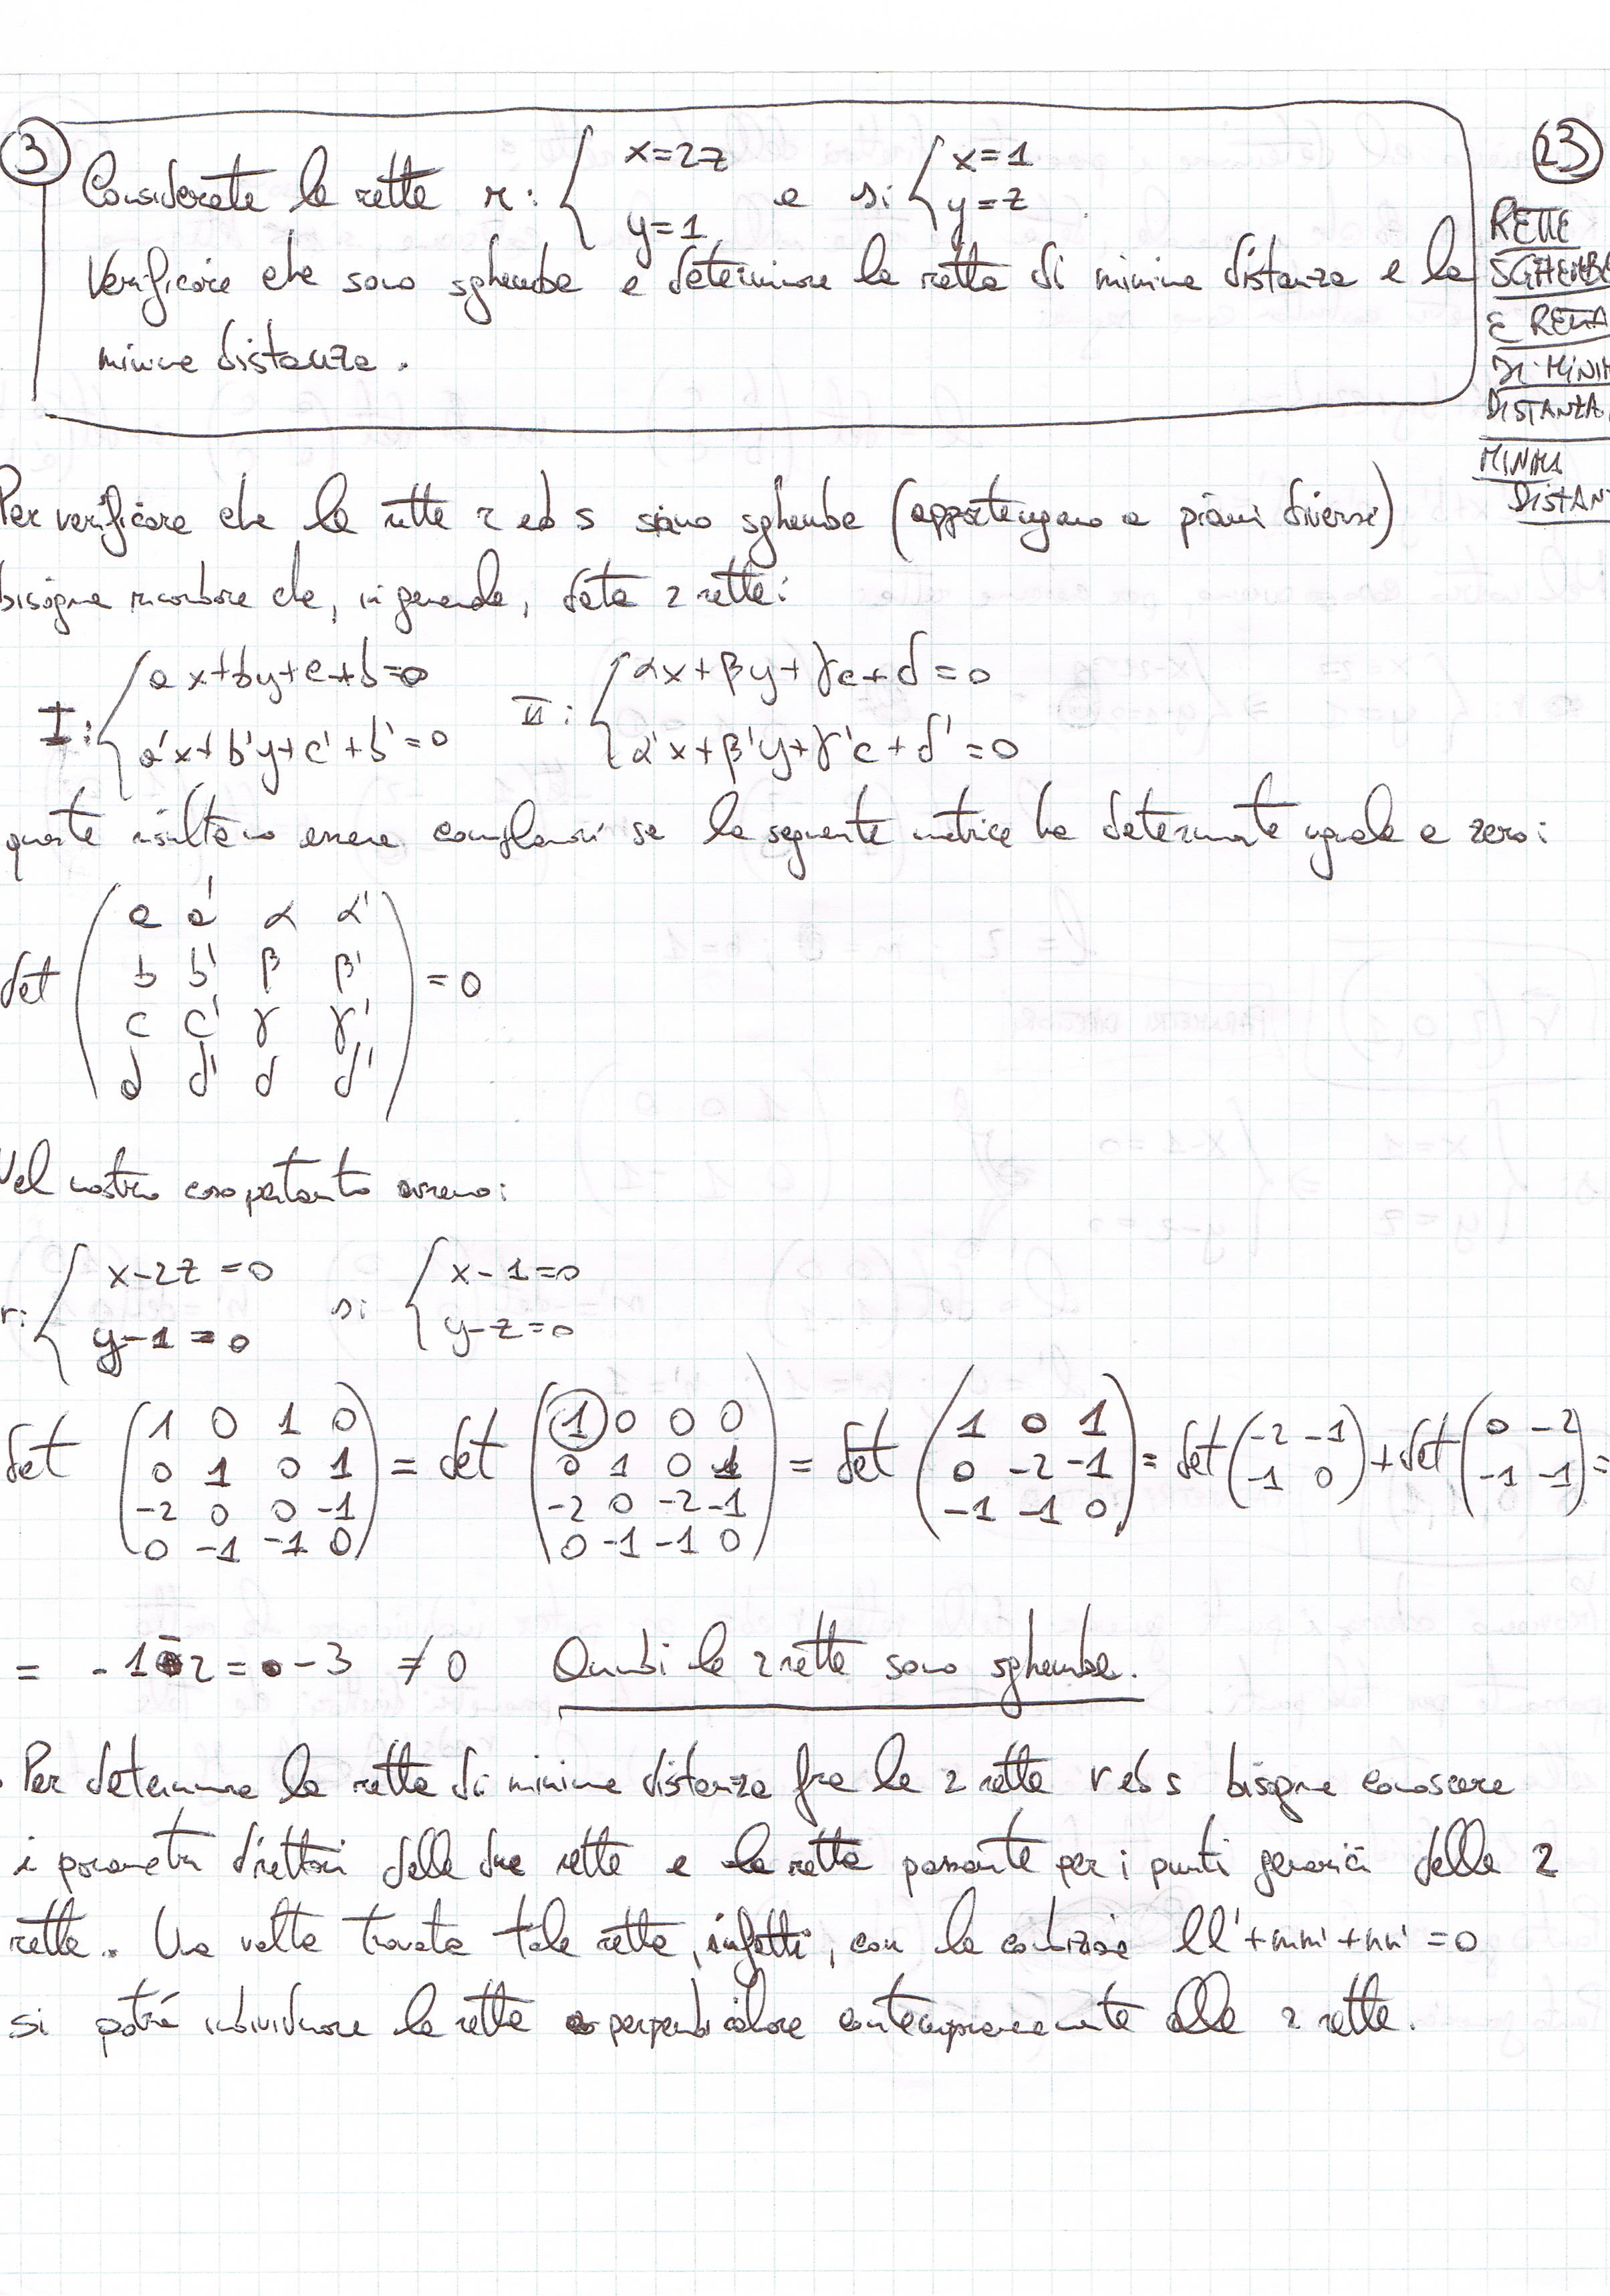 3
Considerate le rette r: { x=2z y=1 e s: { x=1 y=z .
Verificare che sono sghembe e determinare la retta di minima distanza e la
minima distanza.
23
RETTE
SGHEMBE
E RETTA
DI MINIM
DISTANZA,
MINIMA
DISTAN
Per verificare che le rette r ed s siano sghembe (appartengano a piani diversi)
bisogna ricordare che, in generale, date 2 rette:
I: { ax+by+c+d=0 II: { αx+βy+γc+d=0
a'x+b'y+c'+b'=0 α'x+β'y+γ'c+d'=0
queste risultano essere complanari se la seguente matrice ha determinante uguale a zero:
a a' α α'
b b' β β'
det = 0
c c' γ γ'
d d' d d'
Nel nostro caso pertanto avremo:
r: { x-2z=0 s: { x-1=0
y-1=0 y-z=0
det (1 0 1 0 = det (1 0 0 0 = det (1 0 1 = det (-2 -1 + det (0 -2 =
0 1 0 1 0 1 0 1 0 -2 -1 -1 0) -1 -1)
-2 0 0 -1 -2 0 -2 -1 -1 -1 0)
0 -1 -1 0) 0 -1 -1 0)
= -1-2= -3 ≠0 Quindi le 2 rette sono sghembe.
Per determinare la retta di minima distanza fra le 2 rette r ed s bisogna conoscere
i parametri direttori delle due rette e la retta passante per i punti generici delle 2
rette. Una volta trovata tale retta, infatti, con la condizione ll'+mm'+nn'=0
si potrà individuare la retta perpendicolare contemporaneamente alle 2 rette.